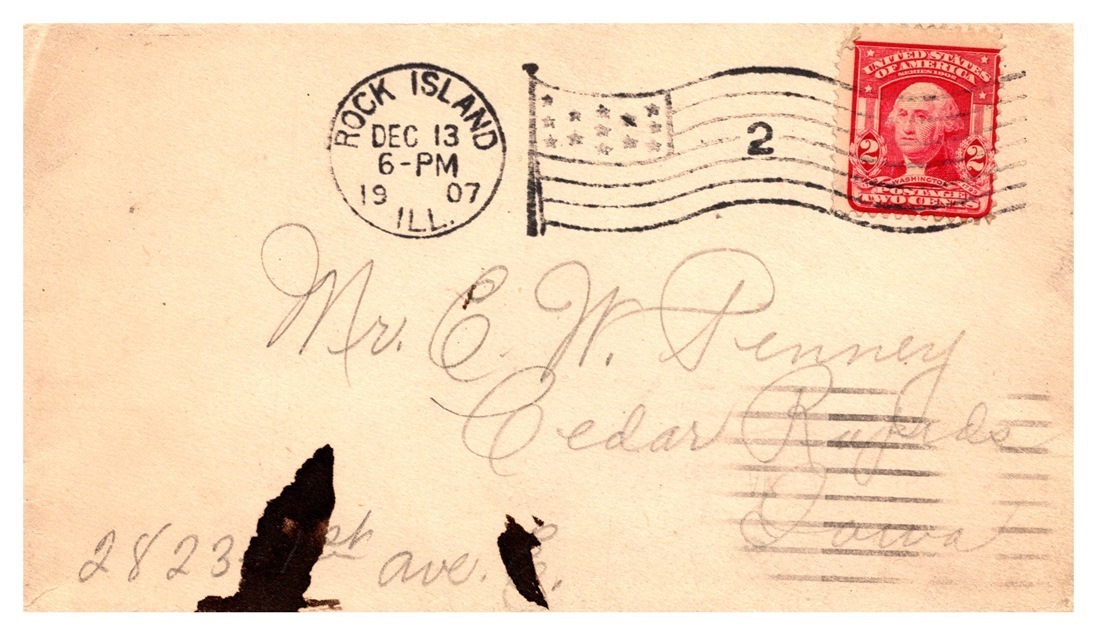 ROCK ISLAND
DEC 13
6-PM
19 07
ILL.
2
UNITED STATES
OF AMERICA
SERIES 1902
2 2
WASHINGTON
POSTAGE
TWO CENTS
Mr. E. W. Penney
Cedar Rapids
Iowa
2823 ave.